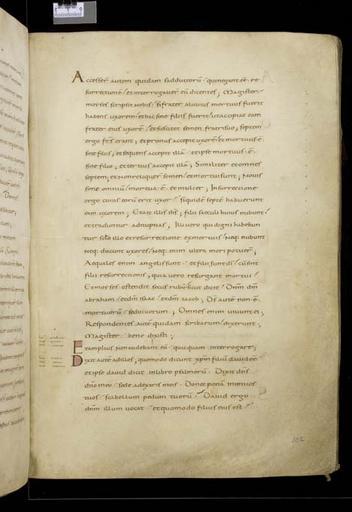 Accesserunt autem quidam sadducaeorum qui negant esse re
surrectionem et interrogaverunt eum dicentes; Magister
moyses scripsit nobis si frater alicuius mortuus fuerit
habens uxorem et hic sine filiis fuerit ut accipiat eam
frater eius uxorem et suscitet semen fratri suo; septem
ergo fratres erant; et primus accepit uxorem et mortuus est
sine filiis; et sequens accepit illam et ipse mortuus est
sine filio; et tertius accepit illam; Similiter et omnes
septem; et non reliquerunt semen et mortui sunt; Novis
sime omnium mortua est et mulier; In resurrectione
ergo cuius eorum erit uxor siquidem septem habuerunt
eam uxorem; Et ait illis iesus; filii saeculi huius nubunt
et traduntur ad nuptias; Illi vero qui digni habebun
tur saeculo illo et resurrectione ex mortuis neque nubunt
neque ducunt uxores neque enim ultra mori poterunt;
Aequales enim angelis sunt et filii sunt dei cum sint
filii resurrectionis; quia vero resurgant mortui
Et moyses ostendit secus rubum sicut dicit dominum deum
abraham et deum isaac et deum iacob; Deus autem non est
mortuorum sed vivorum; Omnes enim vivunt ei;
Respondentes autem quidam scribarum dixerunt;
Magister bene dixisti;
Et amplius non audebant eum quicquam interrogare;
Dixit autem ad illos; quomodo dicunt christum filium david esse
et ipse david dicit in libro psalmorum Dixit dominus
domino meo sede a dextris meis Donec ponam inimicos
tuos scabellum pedum tuorum David ergo
dominum illum vocat et quomodo filius eius est